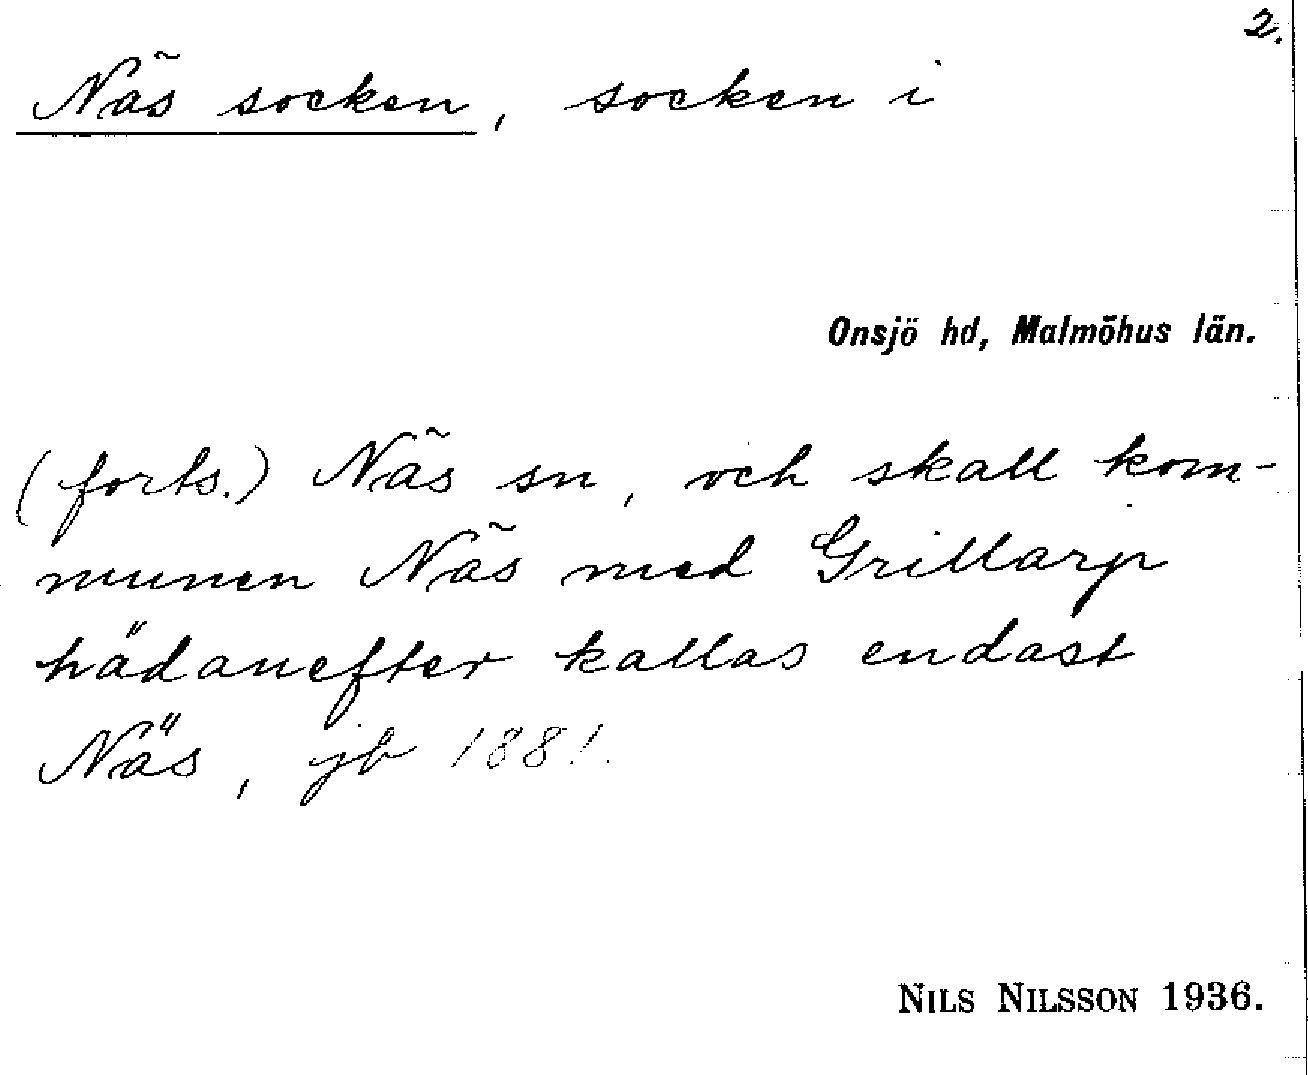 2.
Näs socken, socken i
Onsjö hd, Malmöhus län.
(forts.) Näs sn, och skall kom-
munen Näs med Grillarp
hädanefter kallas endast
Näs, jb 1881.
NILS NILSSON 1936.